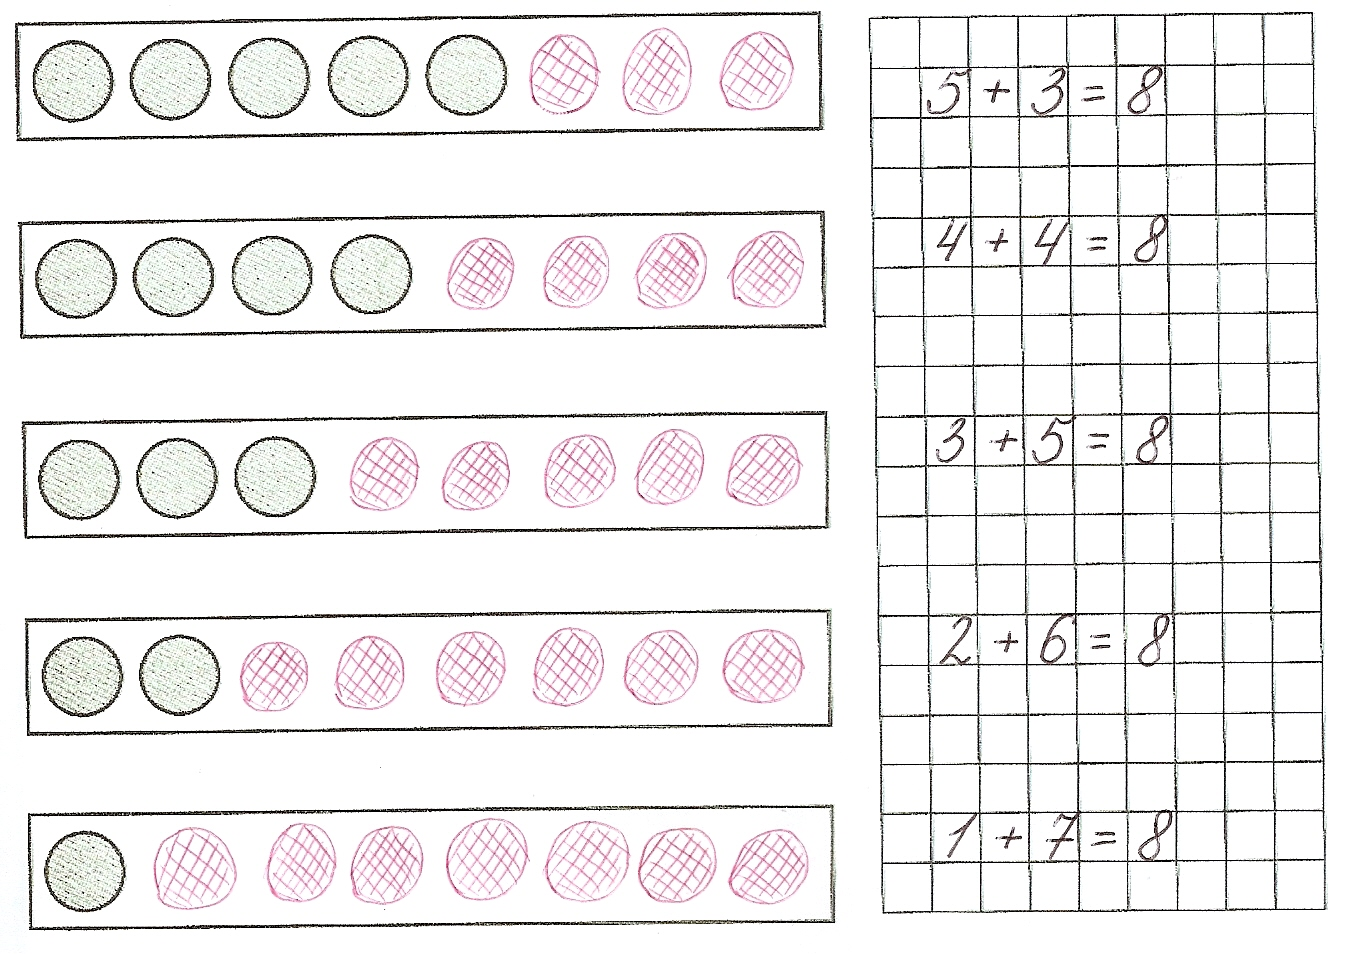 5 + 3 = 8
4 + 4 = 8
3 + 5 = 8
2 + 6 = 8
1 + 7 = 8